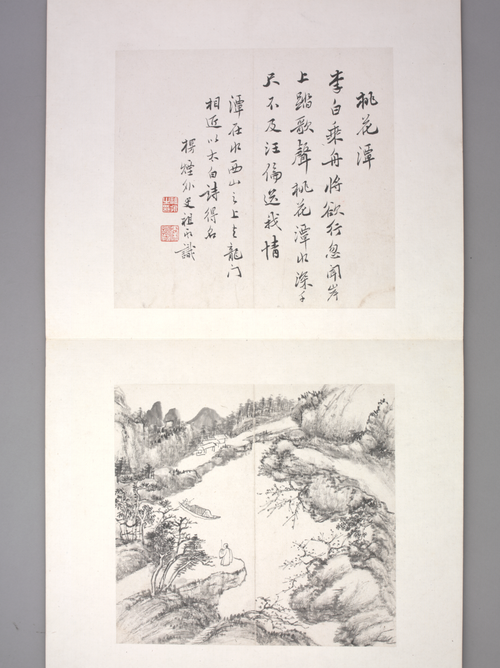 桃花潭
李白乘舟將欲行忽聞岸
上踏歌聲桃花潭水深千
尺不及汪倫送我情
潭在水西山之上与龍门
相近以太白詩得名
楞煙外史祖永識